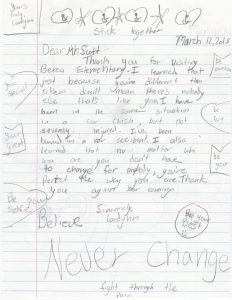 Yours
Truly
Ladyhm
Stick together
March 12, 2018
Dear Mr. Scott
Thank you for Visiting
Berea Elementary. I learned that
just because you're different then
others doesn't mean there's nobody
else that's like you. I have
been in the same situation
in a car crash, but not
severely injured. I've been
burned in a car accident. I also
learned that no matter who
you are you don't have
to change for nobody, you're
perfect the way you are. Thank
you again for coming
Be
your
self
Sincerely,
Ladyhm
Believe
Be you
Be your
Best
Never Change
fight through the
pain